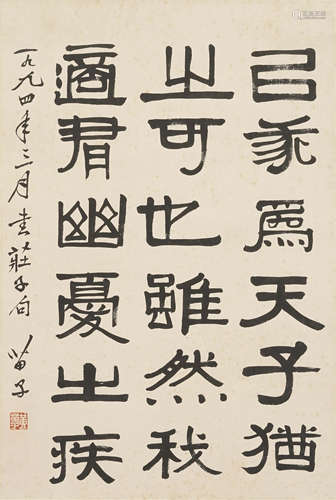 㠯我爲天子猶
㞢可也雖然我
適有幽憂㞢疾
一九九四年三月书莊子句 苗子